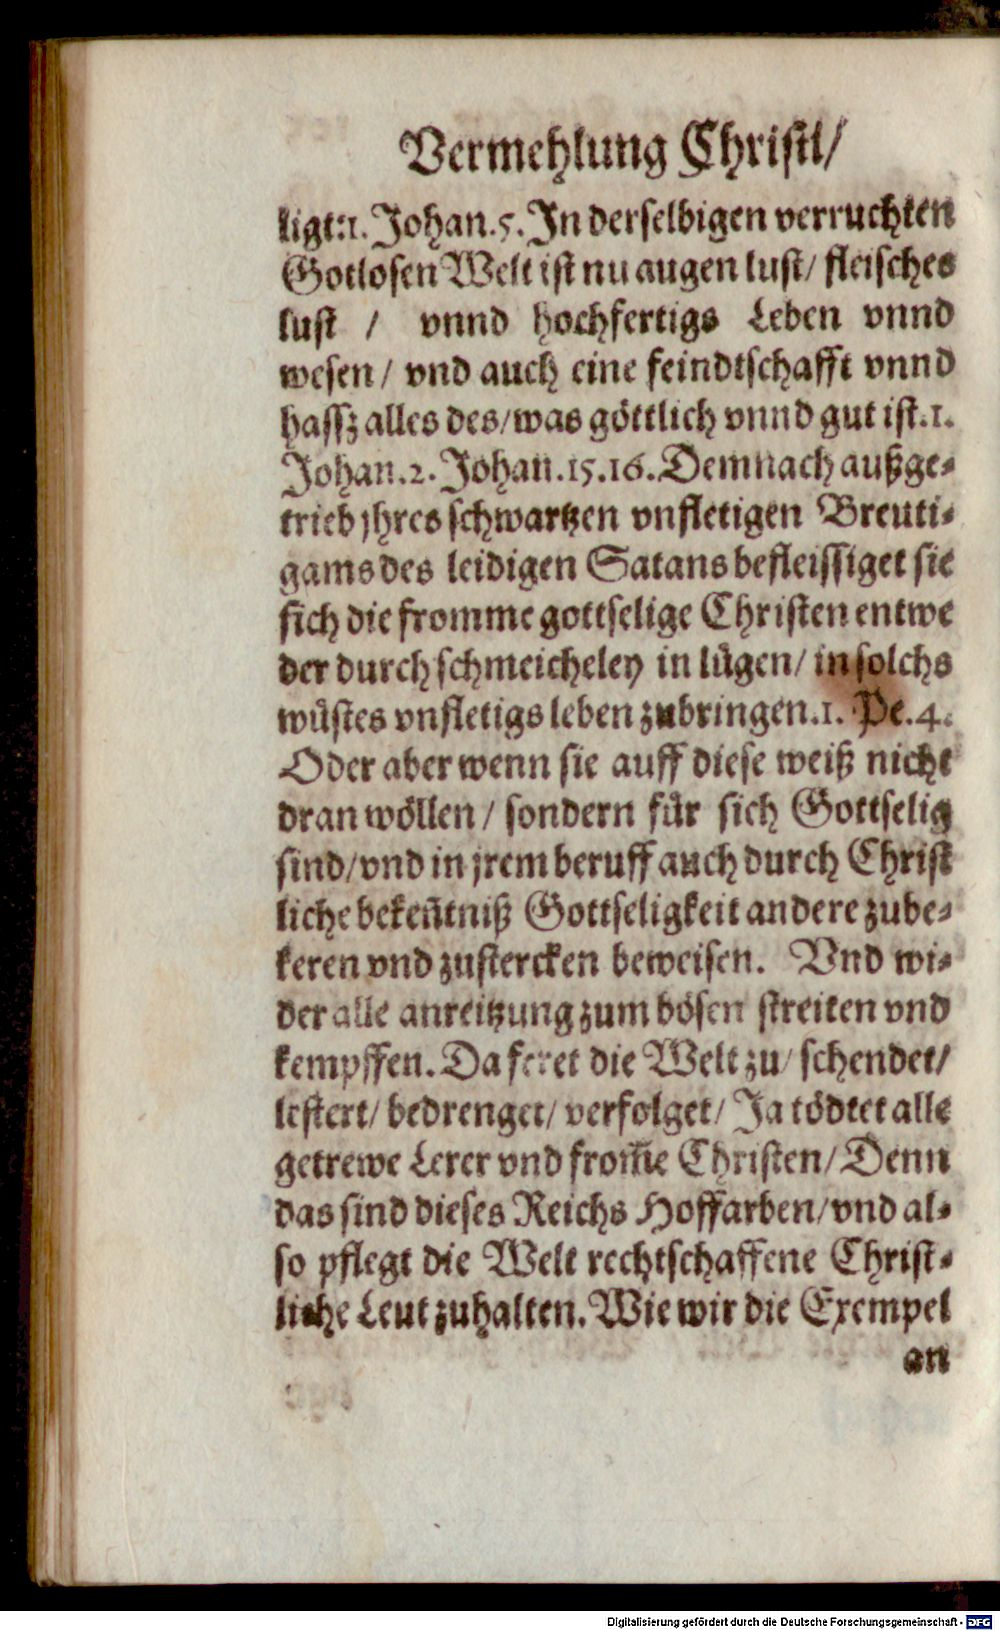 Vermehlung Christi/
ligt:1. Johan.5. In derselbigen verruchten
Gotlosen Welt ist nu augen lust/ fleisches
lust / vnnd hochfertigs Leben vnnd
wesen/ vnd auch eine feindtschafft vnnd
hassz alles des/was göttlich vnnd gut ist.1.
Johan.2. Johan.15.16. Demnach außge-
trieb jhres schwartzen vnfletigen Breuti-
gams des leidigen Satans befleissiget sie
sich die fromme gottselige Christen entwe
der durch schmeicheley in lügen/ in solchs
wüstes vnfletigs leben zubringen.1. Pe.4.
Oder aber wenn sie auff diese weiß nicht
dran wöllen/ sondern für sich Gottselig
sind/vnd in jrem beruff auch durch Christ
liche bekeñtniß Gottseligkeit andere zube-
keren vnd zustercken beweisen. Vnd wi-
der alle anreitzung zum bösen streiten vnd
kempffen. Da feret die Welt zu/ schendet/
lestert/ bedrenget/ verfolget/ Ja tödtet alle
getrewe Lerer vnd from̃e Christen/ Denn
das sind dieses Reichs Hoffarben/vnd al-
so pflegt die Welt rechtschaffene Christ-
liche Leut zuhalten. Wie wir die Exempel
an
Digitalisierung gefördert durch die Deutsche Forschungsgemeinschaft - DFG